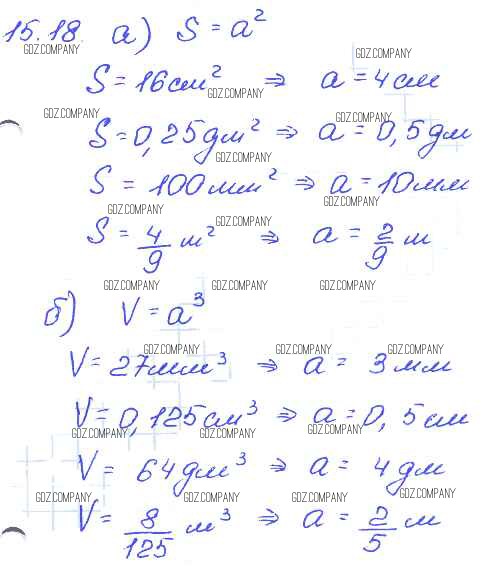 15.18. а) S = a²
GDZ.COMPANY
GDZ.COMPANY
S = 16 см² ⇒ a = 4 см
GDZ.COMPANY GDZ.COMPANY
GDZ.COMPANY
S = 0,25 дм² ⇒ a = 0,5 дм
GDZ.COMPANY
S = 100 мм² ⇒ a = 10 мм
GDZ.COMPANY GDZ.COMPANY
GDZ.COMPANY
S = 4/9 м² ⇒ a = 2/9 м
GDZ.COMPANY GDZ.COMPANY GDZ.COMPANY
б) V = a³
GDZ.COMPANY GDZ.COMPANY GDZ.COMPANY
V = 27 мм³ ⇒ a = 3 мм
V = 0,125 см³ ⇒ a = 0,5 см
GDZ.COMPANY GDZ.COMPANY GDZ.COMPANY
V = 64 дм³ ⇒ a = 4 дм
GDZ.COMPANY GDZ.COMPANY GDZ.COMPANY GDZ.COMPANY
V = 8/125 м³ ⇒ a = 2/5 м